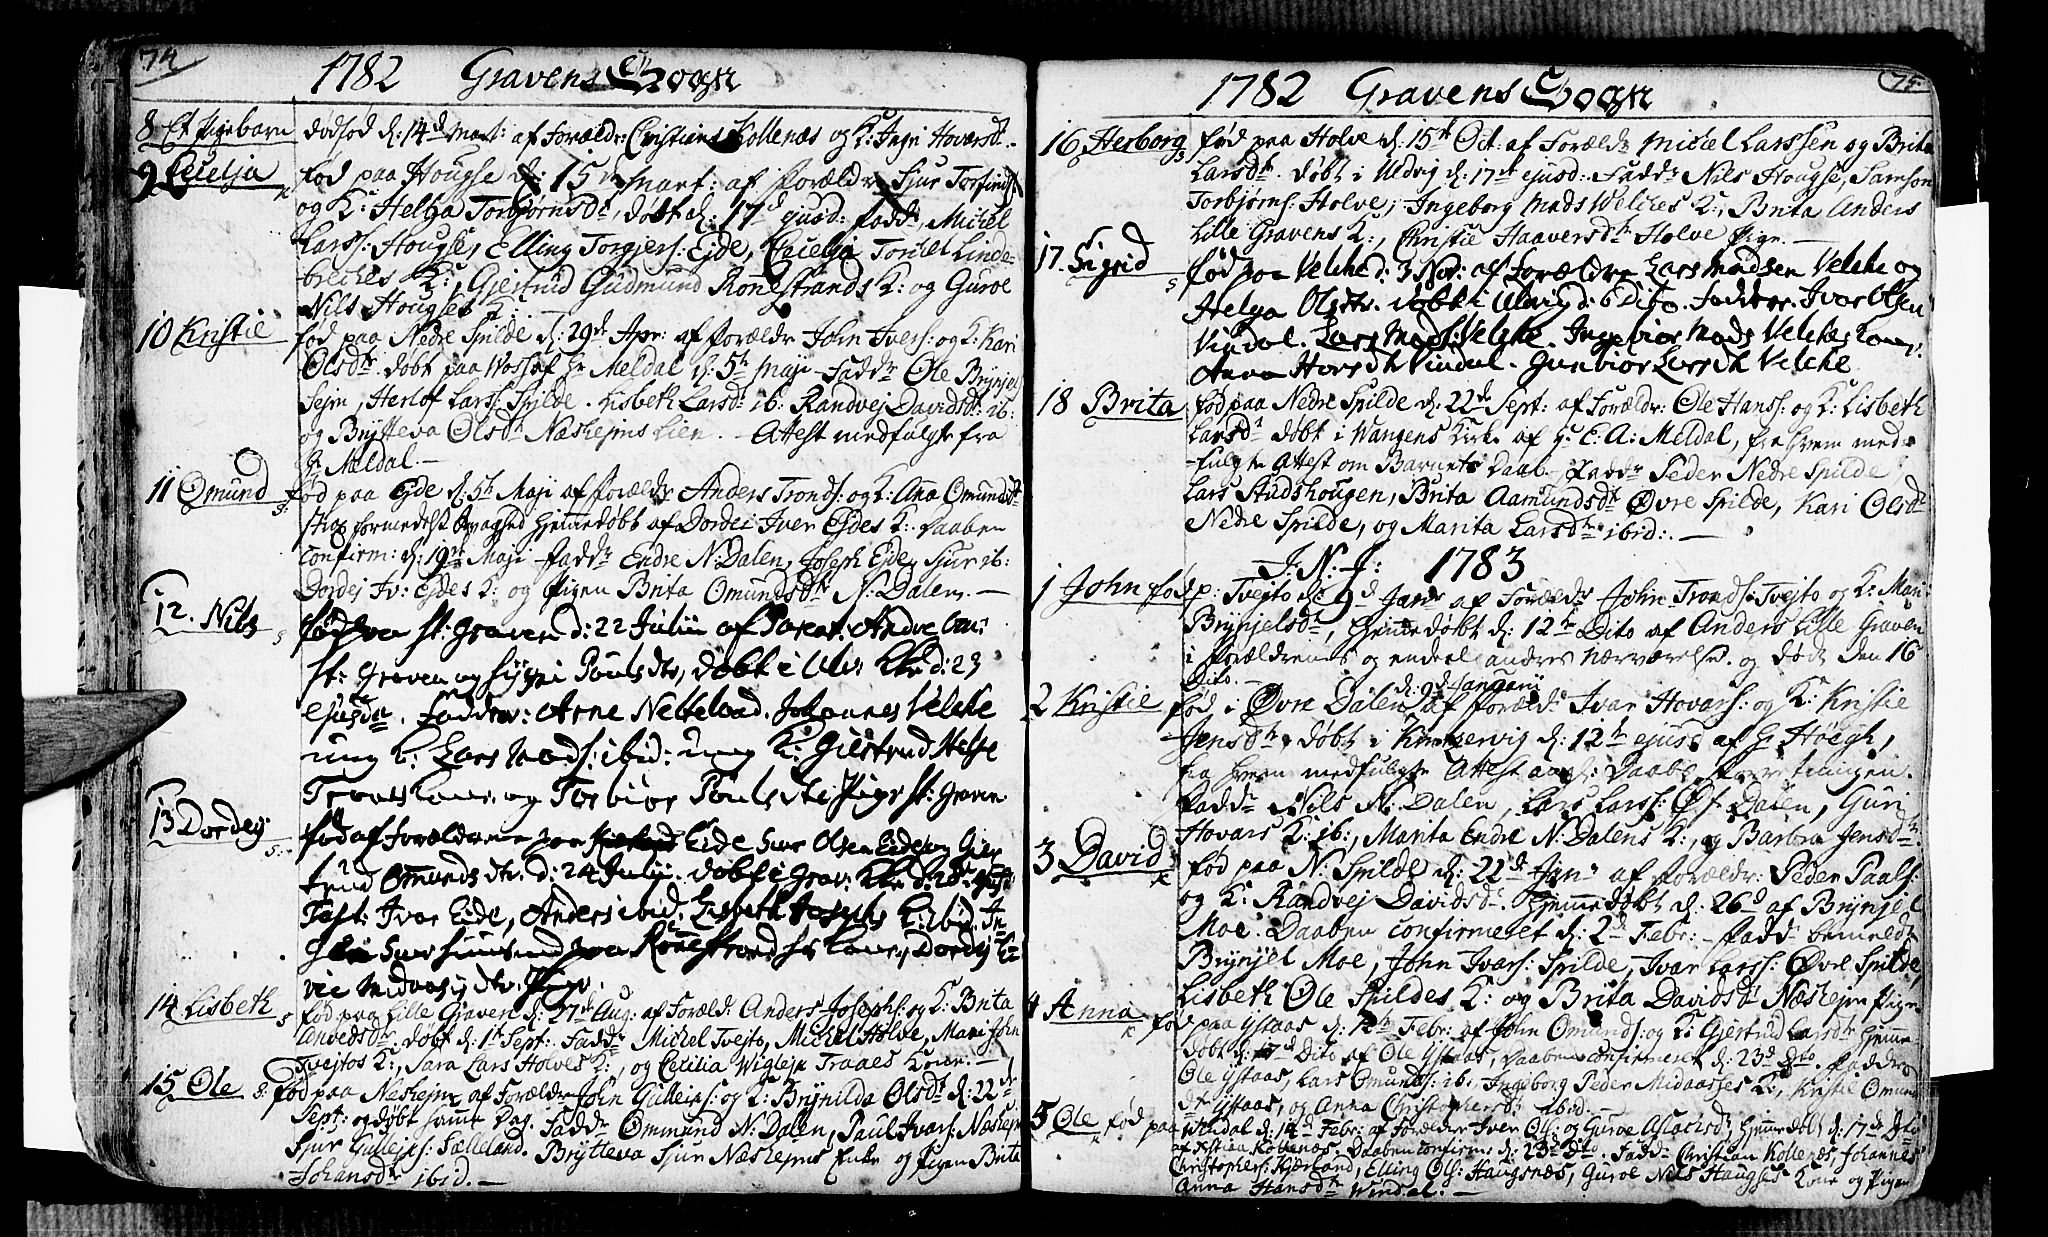 74
1782 Gravens Sogn
8 Et Pigebarn dødfød d: 14d Mart: af Foræld: Christians Kollenæs og K: Ingr Hovarsdt.
9 Cecelja fød paa Hougse d: 15 Mart: af Forældr Sjur Torfinds:
og K: Helga Torbjørnsdt, døbt d: 17d ejusd: Faddr, Michel
Larss: Hougse, Elling Torgjers: Ejde, Cecelja Torkel Linde-
breches K: Gjertrud Gudmund Rønestrands K: og Guroe
Nils Hougses K:
10 Kristie fød paa Nedre Spilde d: 29de Apr: af Forældr John Ivers: og K: Kari
Olsdt. døbt paa Woss af Hr Meldal d: 5te Maji - Faddr Ole Brynjel
Sejm, Herlof Larss: Spilde. Lisbeth Larsd: ib: Randvej Davidsdt: ib:
og Brytteva Olsdtr Næshejms Lien. - Attest medfulgte fra
H. Meldal. -
11 Omund fød paa Ejde d: 5te Maji af Forældr Anders Tronds: og K: Ana Omundsdt
strax formedelst svaghed hjemmedøbt af Dordei Iver Ejdes K: Daaben
confirm: d: 19de Maji - Faddr Endre N: Dalen, Joseph Ejde, Sjur ib:
Dordej Iv: Ejdes K: og Pigen Brita Omundsdtr N: Dalen. -
12. Nils fød paa St: Graven d: 22 Julii af Parent: Andve
St: Graven og Sygni Poulsdtr, døbt i Ulv: Kke d: 23
ejusdm. Fadder: Arne Nettelaad. Johannes Velche
ung K: Lars Mads: ibid: ung K: Giertrud Helse
Kone. og Torbiør Poulsdtr Pige St: Graven.
13 Dordej: fød af Forældrene paa Eide Siur Olsen Eide og Gier
trud Omundsdtr. d: 24 Julij. døbt i Grav: Kke d: 28
Test: Ivar Eide, Anders ibid. Lisbeth Josephs K: ibid. In
paa Rønestrand hs Kone, Dordej
Pige.
14 Lisbeth fød paa Lille Graven d: 27de Aug: af Foræld: Anders Josephs: og K: Brita
døbt d: 1te Sept: Faddr: Michel Tvejto, Michel Holve, Mari John
Tvejtos K:, Sara Lars Holves K:, og Cecilia Wiglejv Traaes Kone. -
15 Ole fød paa Næshejm af Forældr John Gullejvs: og K: Brynilda Olsdt d: 22de
Sept: og døbt samme Dag. Faddr Ommund N: Dalen, Paul Ivars: Næshejm
Sjur Gullejvs: Sælleland. Brytteva Sjur Næshejms Enke og Pigen Brita
Johansdtr ibid. -
75
1782 Gravens Sogn
16 Herborg fød paa Holve d: 15de Oct. af Forældr Michel Larssen og Brita
Larsdt. døbt i Ulvig d: 17de ejusd: Faddr Nils Hougse, Samson
Torbjørns: Holve, Ingeborg Mads Welches K:, Brita Anders
Lille Gravens K:, Christie Haaversdtr Holve Pige. -
17. Sigrid fød paa Velche d: 3 Nov: af Forældre Lars Madsen Velche og
Helga Olsdtr. døbt i Ulvig d: 6 Dito. Fadder Ivar Olsen
Vindal. Lars Mads: Velche. Ingebior Mads Velches Kone,
Anna Vindal. Gunbior Larsdtr Velche
18 Brita fød paa Nedre Spilde d: 22de Sept: af Forældr: Ole Hanss: og K: Lisbeth
Larsdt døbt i Wangens Kirke af Hr: E. A: Meldal, fra hvem med-
-fulgte Attest om Barnets Daab - Faddr Peder Nedre Spilde
Lars Studshougen, Brita Aamundsdtr Øvre Spilde, Kari Olsdt
Nedre Spilde, og Marita Larsdtr ibid: -
J: N: J: 1783
1 John fød p: Tvejto d: 9d Janr af Forældr John Tronds: Tvejto og K: Mari
Brynjelsdt, Hjemmedøbt d: 12te Dito af Anders Lille Graven
i Forældrenes og endeel andres nærværelse. og døde den 16
Dito. -
2 Kristie fød i Øvre Dalen d: 9d Januarii af Foræld: Ivar Hovars: og K: Kristie
Jensdtr døbt i Kintzervig d: 12te ejusd af H Høegh,
fra hvem medfulgte Attest om Daabs forretningen.
Faddr Nils N: Dalen, Lars Larss: Øf: Dalen, Guri
Hovars K: ib:, Marita Endre N: Dalens K:, og Barbra Jensdtr.
3 David fød paa N: Spilde d: 22de Jan: af Forældr: Peder Paals:
og K: Randvej Davidsd. Hjemmedøbt d: 26d af Brynjel
Moe. Daaben confirmeret d: 2d Febr: - Faddr bemeldte
Brynjel Moe, John Ivars: Spilde, Ivar Larss: Øvre Spilde,
Lisbeth Ole Spildes K: og Brita Davidsdt Næshejm Pige
4 Anna fød paa Ystaas d: 12te Febr: af John Omunds: og K: Gjertrud Larsdtr Hjemme-
døbt d: 17d Dito af Ole Ystaas, Daaben confirmeret d: 23d Dto. Faddre
Ole Ystaas, Lars Omunds: ib. Ingeborg Peder Midaasjes K:, Kristie Omund
dt Ystaas, og Anna Christophersdtr ibid. -
5 Ole fød paa Windal d: 14d Febr: af Forælder Iver Ols: og Guroe Aslachsd; Hjemmedøbt d: 17de Dto
af Kollenæs. Daaben confirm: d: 23d Dito. Faddr Christian Kollenæs, Johannes
Christophers: Kjærland, Elling Ols: Haugsnæs, Guroe Nils Haugses Kone og Pigen
Anna Hansdtr Windal. -